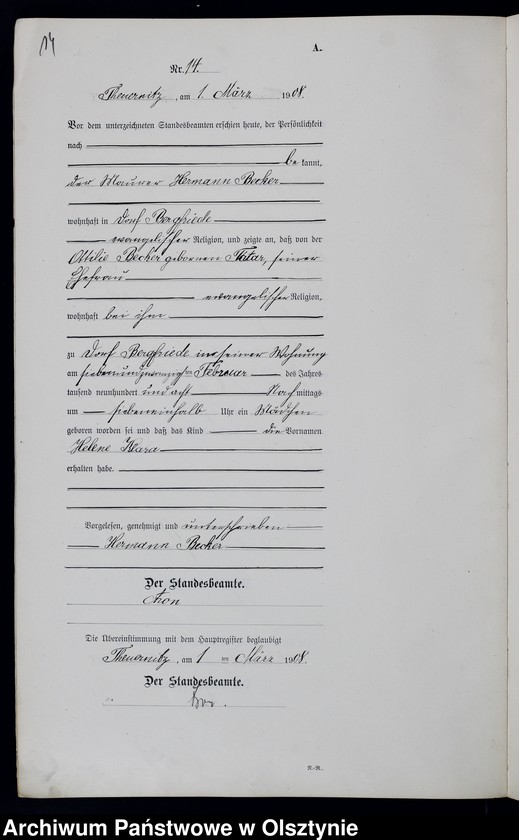 14
A.
Nr. 14.
Theuernitz, am 1. März 1908.
Vor dem unterzeichneten Standesbeamten erschien heute, der Persönlichkeit
nach
be kannt,
der Maurer Hermann Becker
wohnhaft in Dorf Bergfriede
evangelischer Religion, und zeigte an, daß von der
Ottilie Becker geborenen Tatar, seiner
Ehefrau
evangelischer Religion,
wohnhaft bei ihm
zu Dorf Bergfriede in seiner Wohnung
am siebenundzwanzigsten Februar des Jahres
tausend neunhundert und acht Nachmittags
um siebeneinhalb Uhr ein Mädchen
geboren worden sei und daß das Kind die Vornamen
Helene Klara
erhalten habe.
Vorgelesen, genehmigt und unterschrieben
Hermann Becker
Der Standesbeamte.
Die Übereinstimmung mit dem Hauptregister beglaubigt
Theuernitz, am 1 ten März 1908.
Der Standesbeamte.
Archiwum Państwowe w Olsztynie